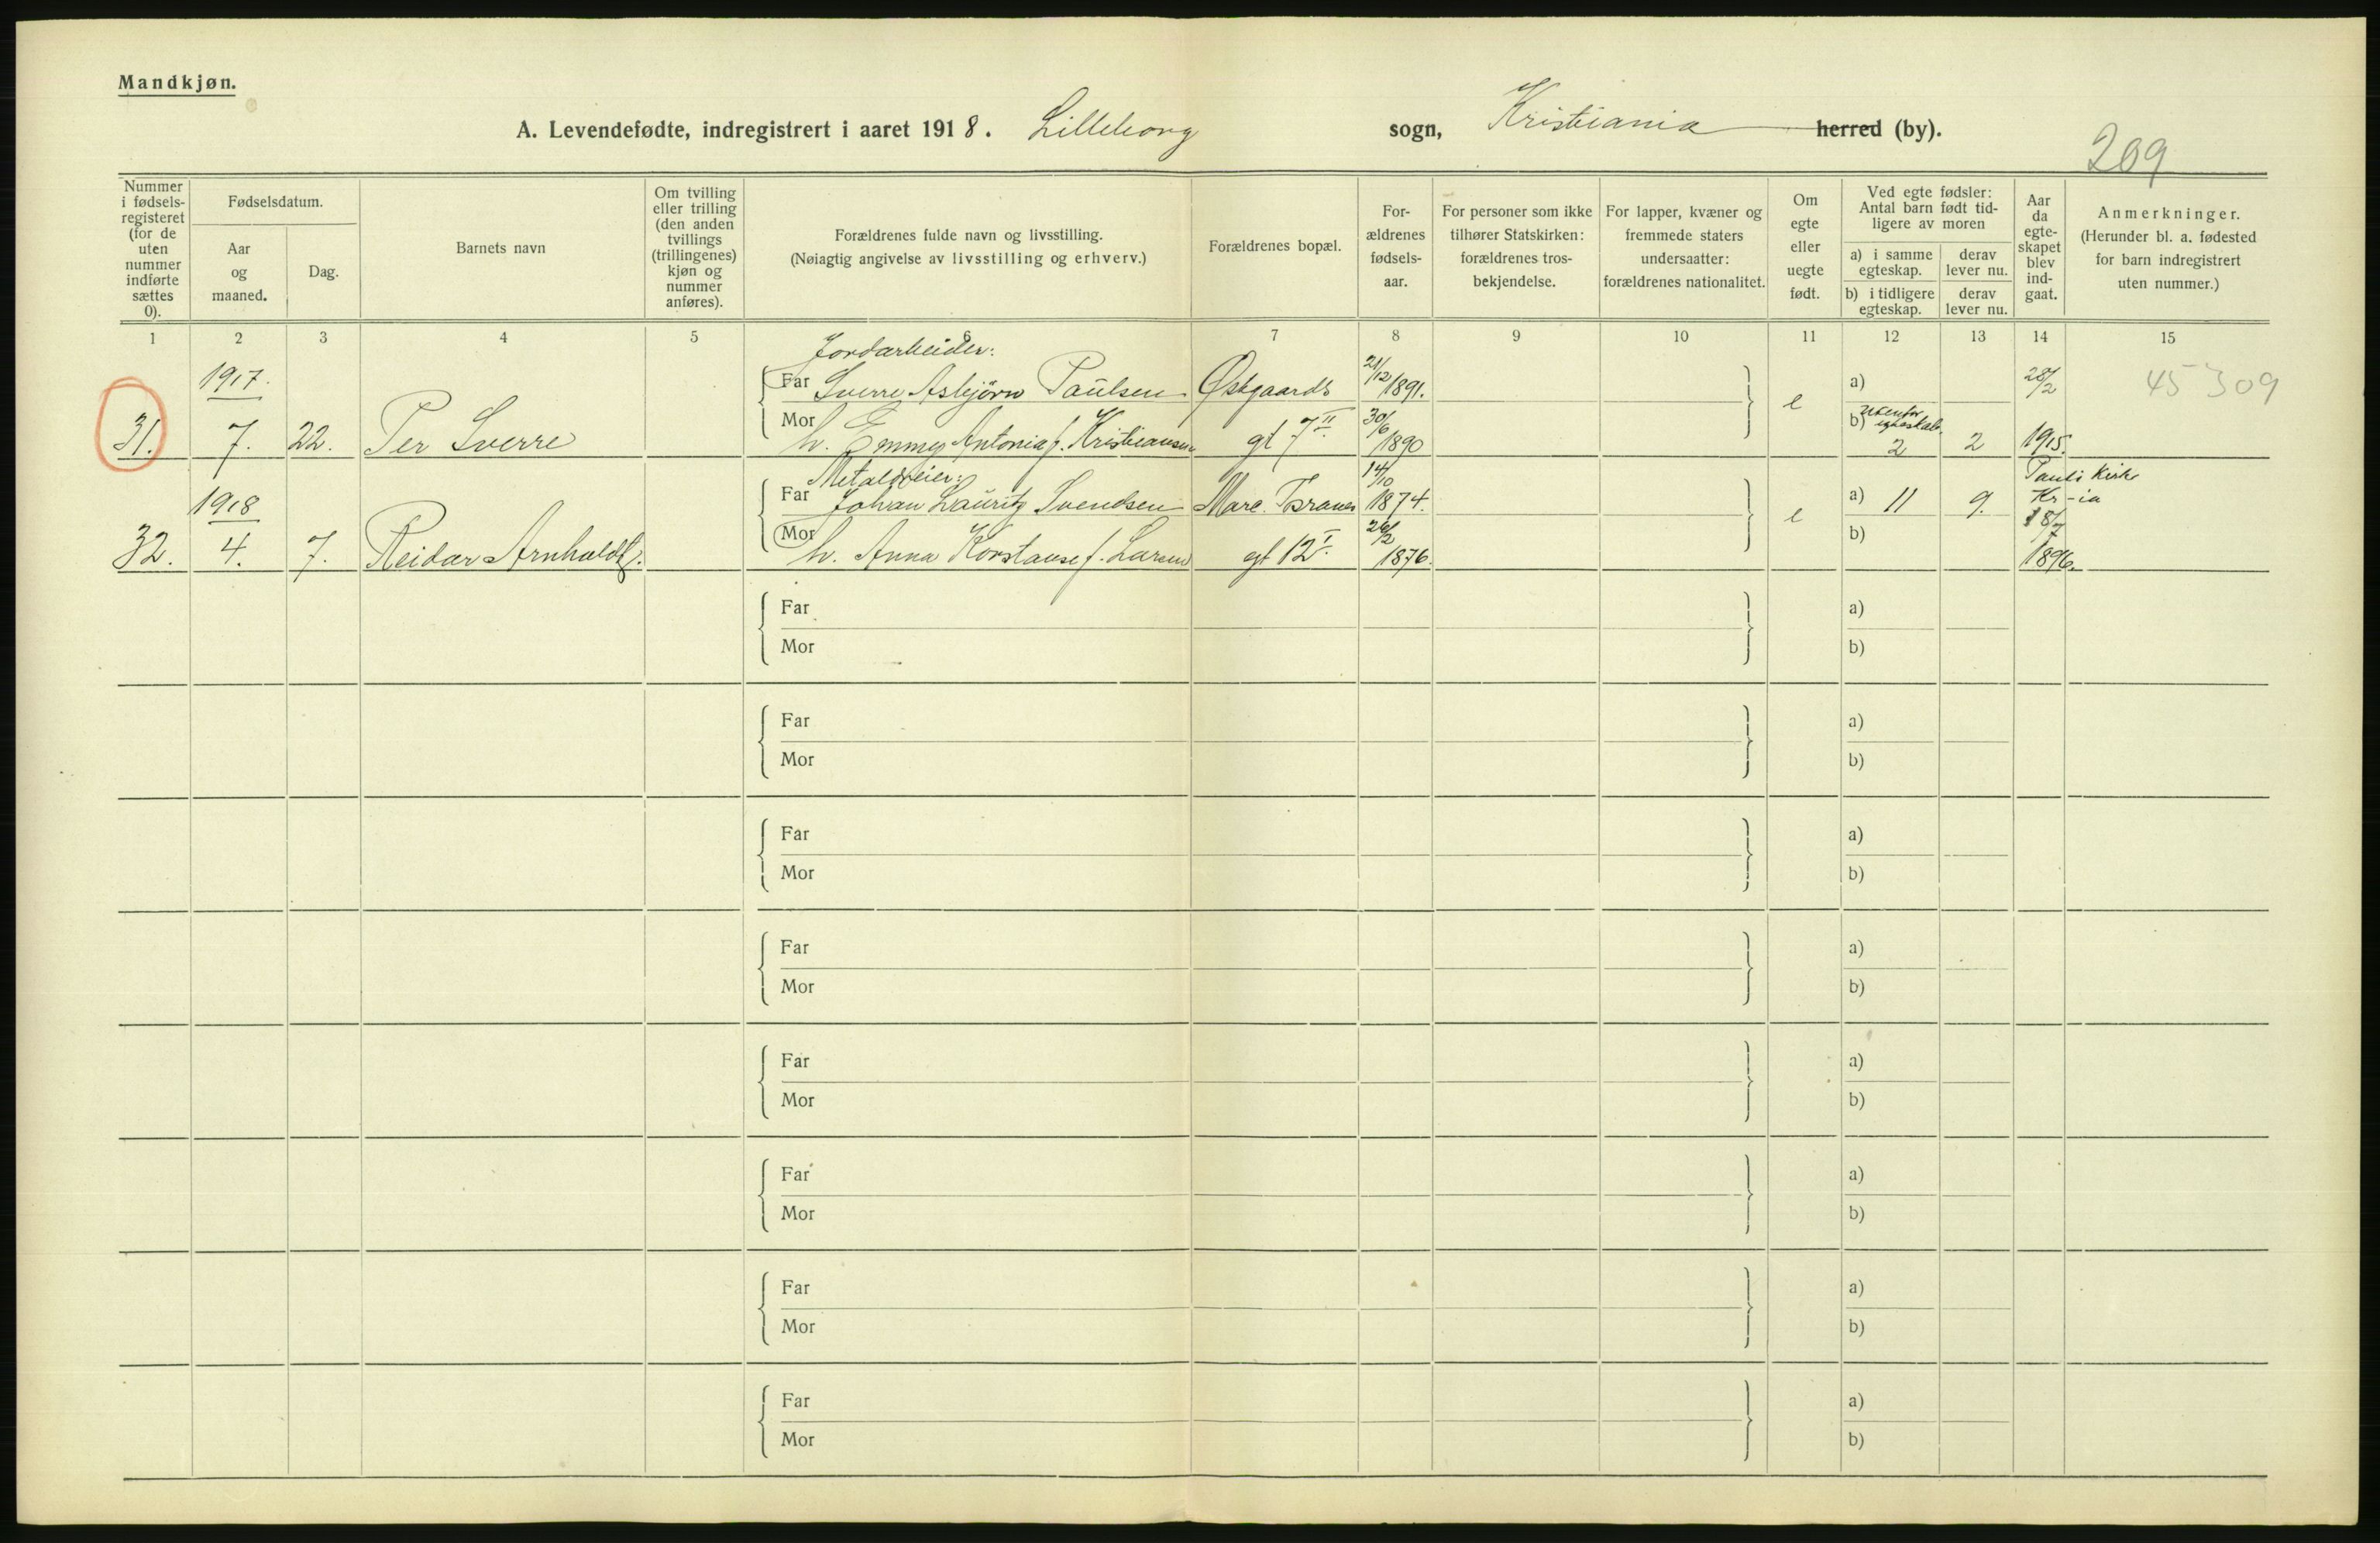 Mandkjøn.
A. Levendefødte, indregistrert i aaret 1918. Lilleborg sogn, Kristiania herred (by).
209
Nummer i fødsels-registeret (for de uten nummer indførte sættes 0).
Fødselsdatum.
Aar og maaned.
Dag.
Barnets navn
Om tvilling eller trilling (den anden tvillings (trillingenes) kjøn og nummer anføres).
Forældrenes fulde navn og livsstilling.
(Nøiagtig angivelse av livsstilling og erhverv.)
Forældrenes bopæl.
For-ældrenes fødsels-aar.
For personer som ikke tilhører Statskirken: forældrenes tros-bekjendelse.
For lapper, kvæner og fremmede staters undersaatter: forældrenes nationalitet.
Om egte eller uegte født.
Ved egte fødsler: Antal barn født tid-ligere av moren
a) i samme egteskap.
derav lever nu.
b) i tidligere egteskap.
derav lever nu.
Aar da egte-skapet blev ind-gaat.
Anmerkninger.
(Herunder bl. a. fødested for barn indregistrert uten nummer.)
1 2 3 4 5 6 7 8 9 10 11 12 13 14 15
Jordarbeider:
1917. Far Sverre Asbjörn Paulsen Østgaards 21/12 1891. a) 28/2 45309
31. 7. 22. Per Sverre Mor h. Emmy Antonia f. Kristiansen gt 7 II. 30/6 1890 e b) utenfor egteskab. 2 2 1915.
Metaldreier:
1918 Far Johan Lauritz Svendsen Marc. Thranes 14/10 1874. a) 11 9. Pauli Kirke Kr-ia
32. 4. 7. Reidar Arnholdt. Mor h. Anna Konstanse f. Larsen gt 12 I. 26/2 1876. e b) 18/7 1896.
Far a)
Mor b)
Far a)
Mor b)
Far a)
Mor b)
Far a)
Mor b)
Far a)
Mor b)
Far a)
Mor b)
Far a)
Mor b)
Far a)
Mor b)